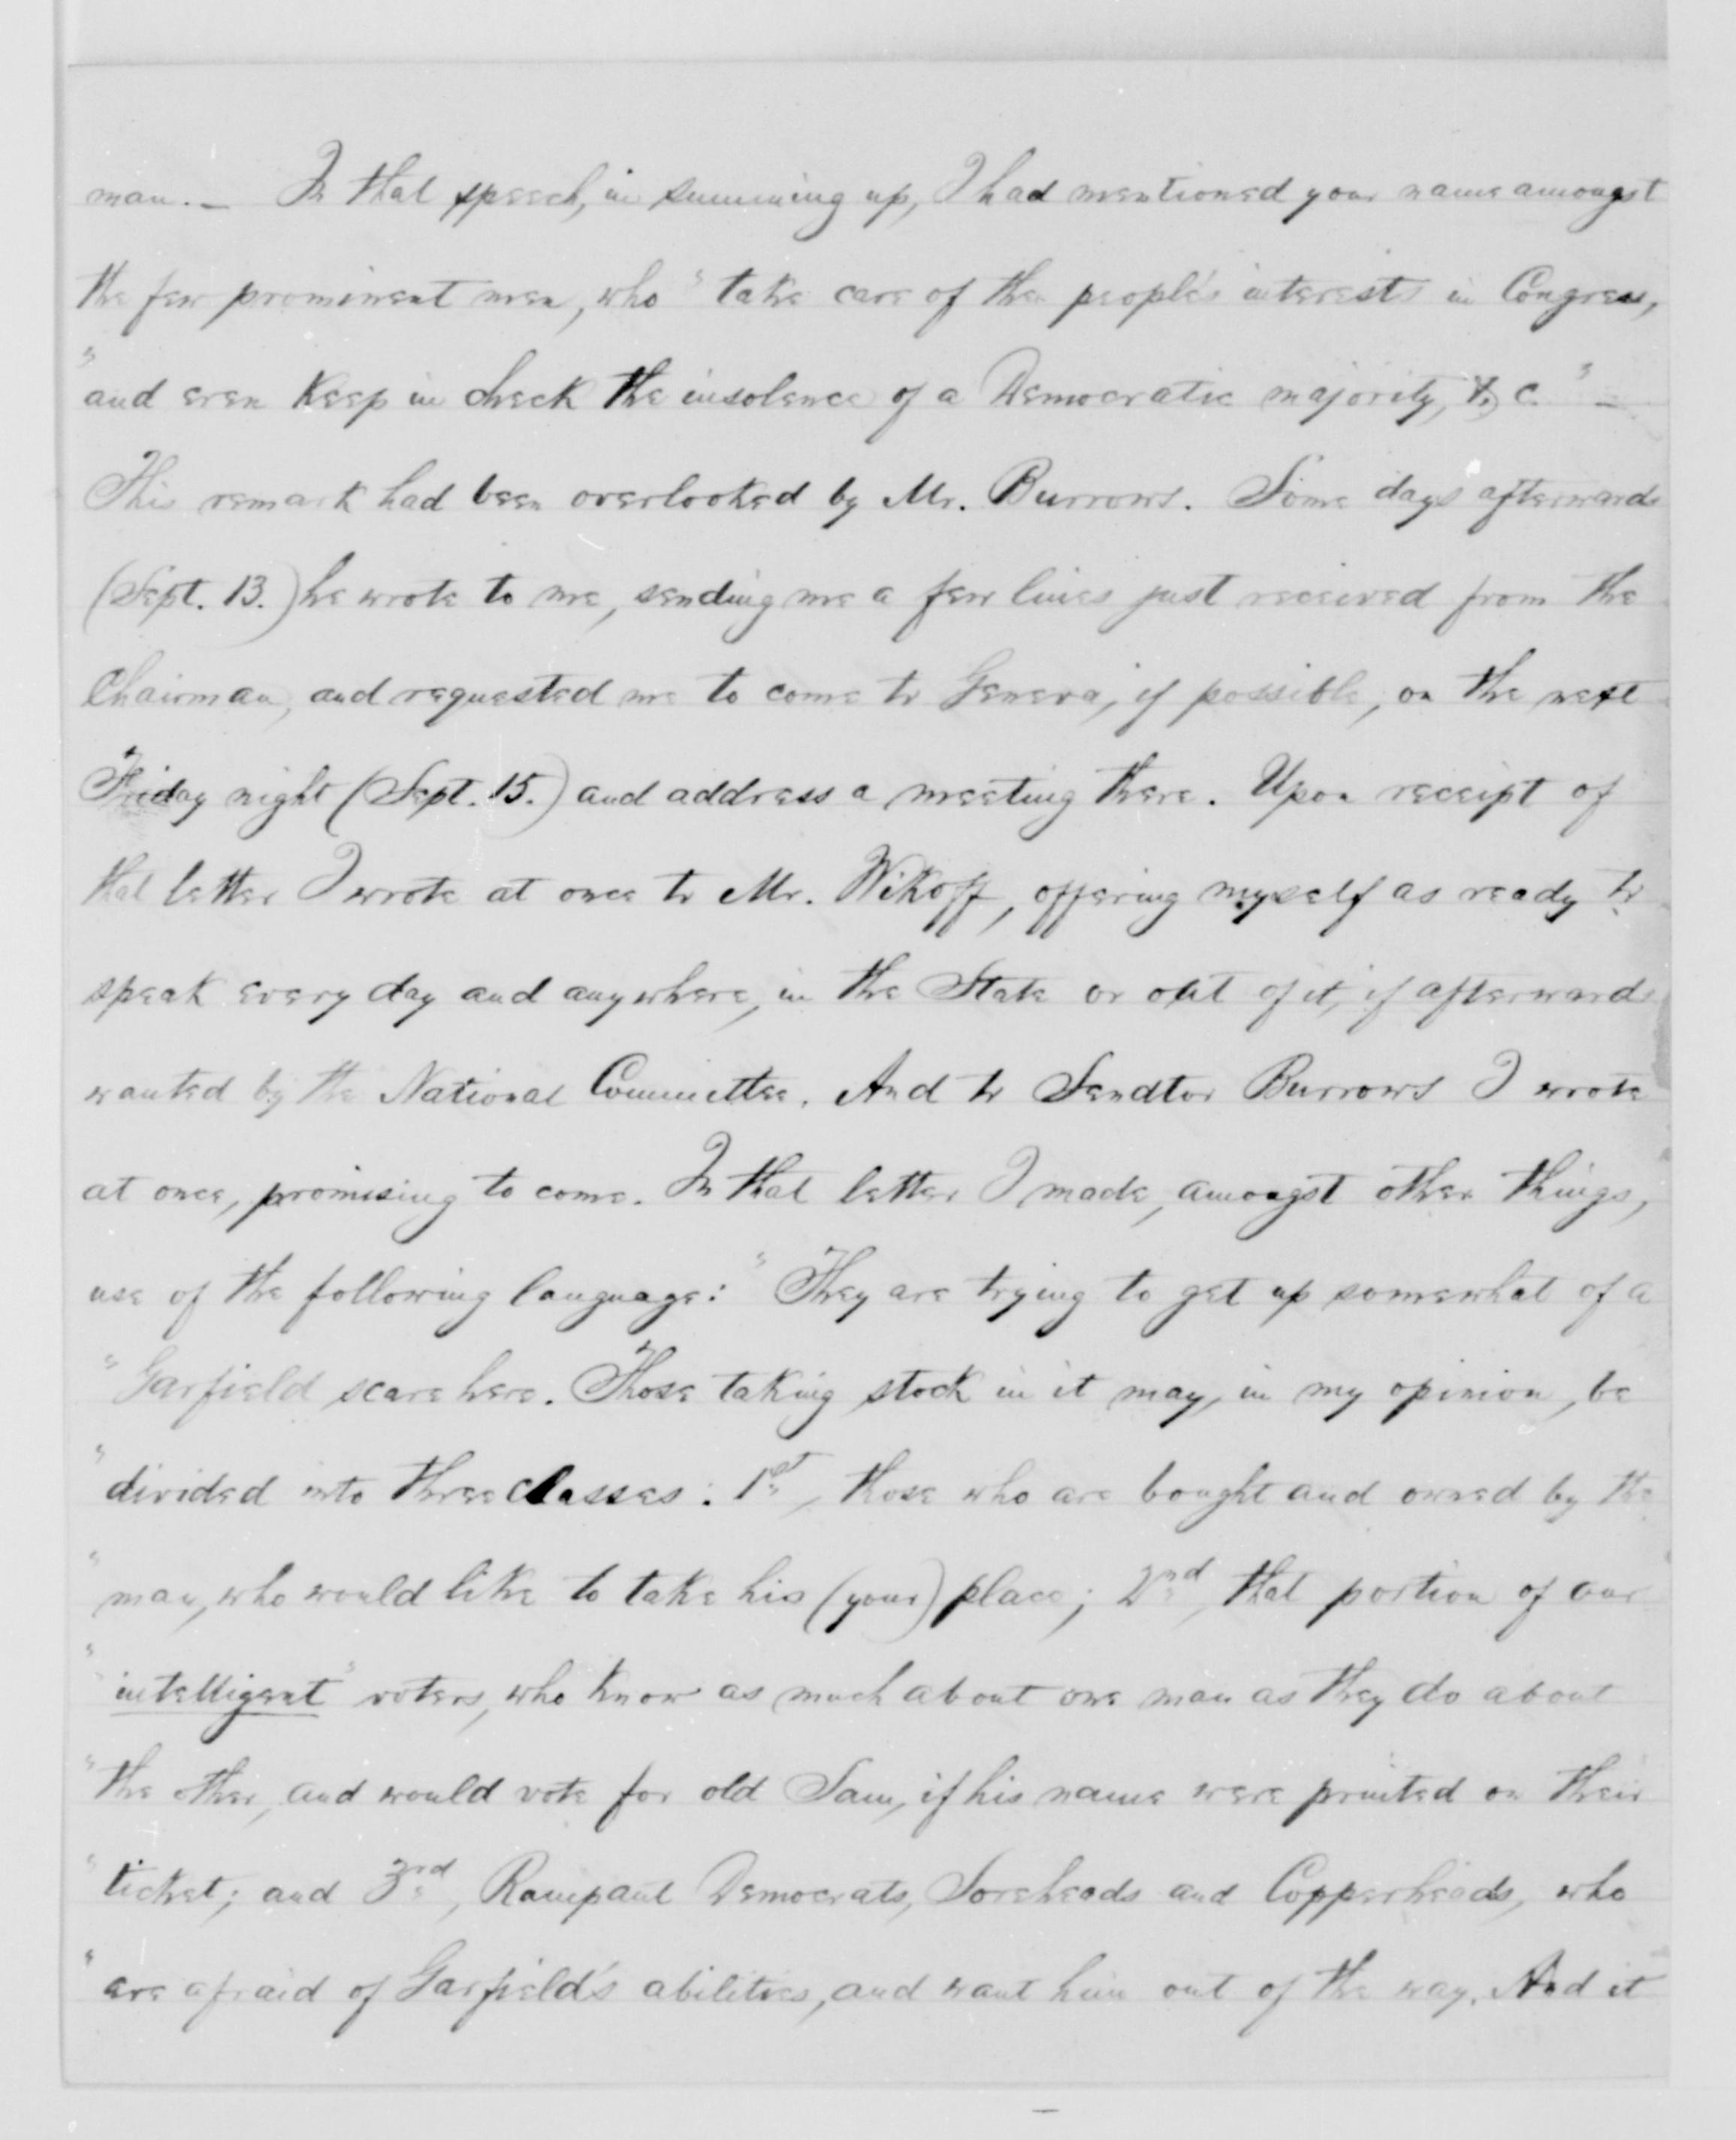 man. — In that speech, in summing up, I had mentioned your name amongst
the few prominent men, who "take care of the people's interests in Congress,
"and even keep in check the insolence of a Democratic majority, &c." —
This remark had been overlooked by Mr. Burrows. Some days afterwards
(Sept. 13.) he wrote to me, sending me a few lines just received from the
Chairman, and requested me to come to Geneva, if possible, on the next
Friday night (Sept. 15.) and address a meeting there. Upon receipt of
that letter I wrote at once to Mr. Wikoff, offering myself as ready to
speak every day and anywhere, in the State or out of it, if afterwards
wanted by the National Committee. And to Senator Burrows I wrote
at once, promising to come. In that letter I made, amongst other things,
use of the following language: "They are trying to get up somewhat of a
"Garfield scare here. Those taking stock in it may, in my opinion, be
"divided into three classes: 1st, those who are bought and owned by the
"man, who would like to take his (your) place; 2nd, that portion of our
""intelligent" voters, who know as much about one man as they do about
"the other, and would vote for old Sam, if his name were printed on their
"ticket; and 3rd, Rampant Democrats, Soreheads and Copperheads, who
"are afraid of Garfield's abilities, and want him out of the way. And it